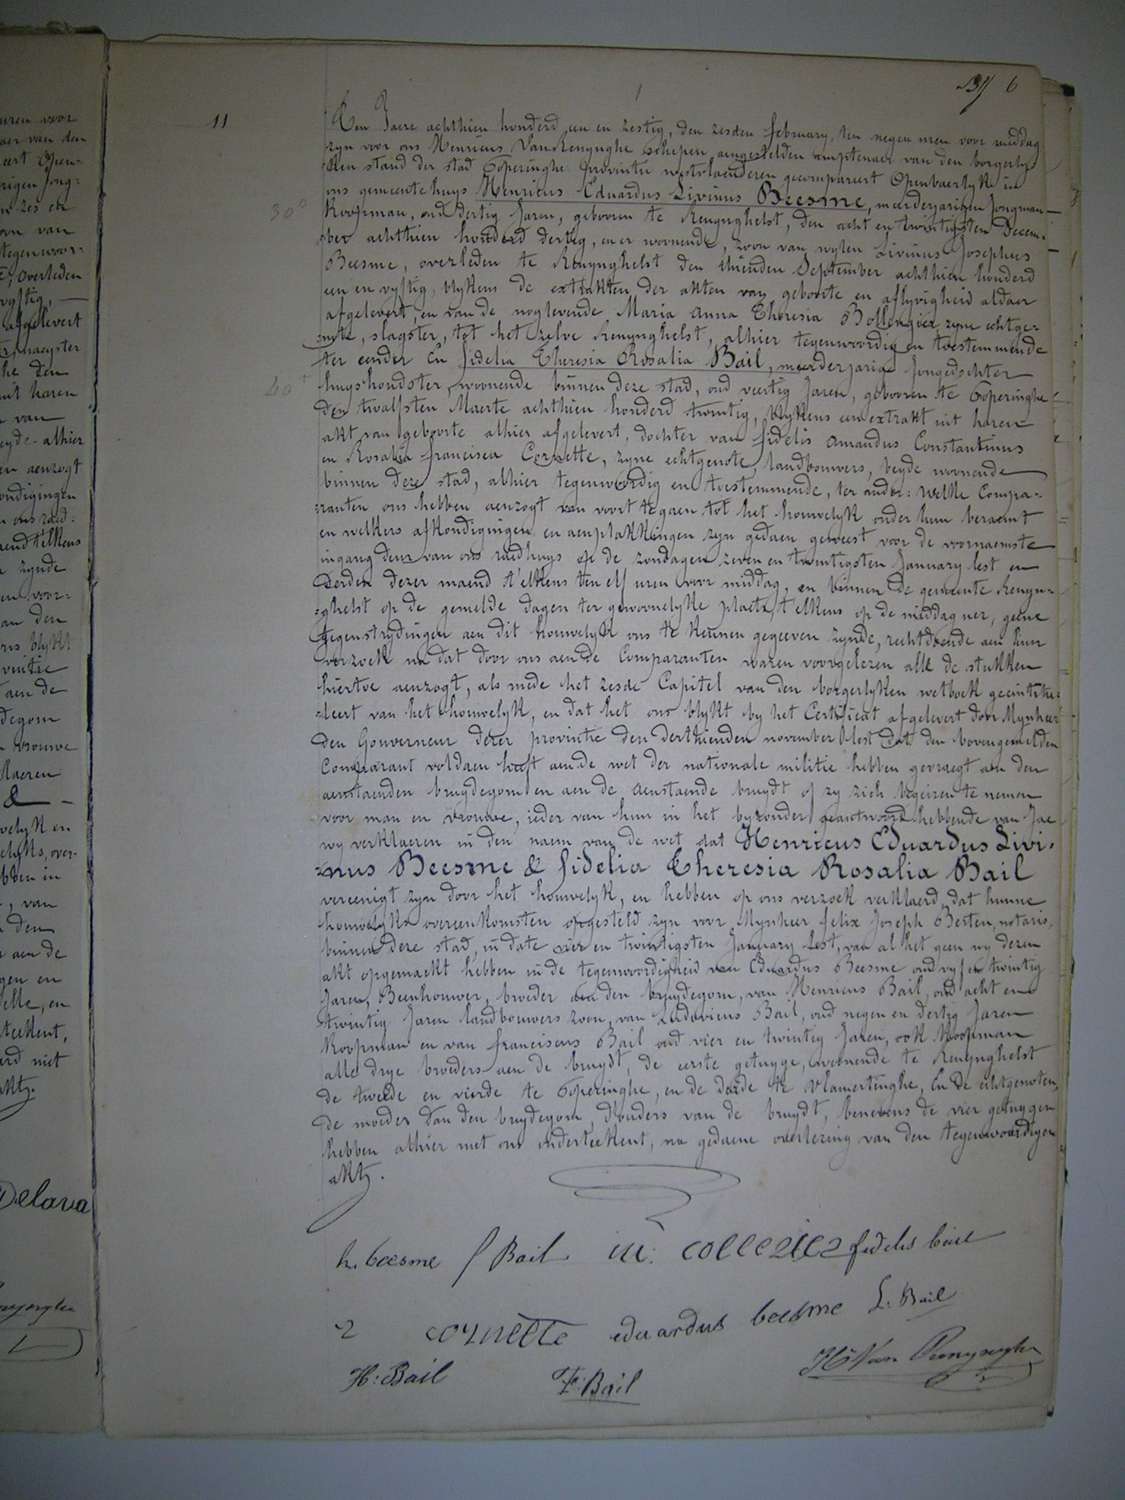 11
6
Den Jaere achthien honderd een en zestig, den zesden february, ten negen uren voor middag
zyn voor ons Henricus VanRenynghe schepen, aengestelden amptenaer van den borgerly-
ken stand der stad Poperinghe provintie westvlaenderen gecompareert Openbaerlyk in
ons gemeentehuys Henricus Eduardus Livinus Beesme, meerderjarigen Jongman
30°
Koopman, oud dertig Jaren, gebooren te Renynghelst, den acht en twintigsten Decem-
ber achthien honderd dertig, en er woonende, zoon van wylen Livinus Josephus
Beesme, overleden te Renynghelst den thienden September achthien honderd
een en vyftig, blykens de extrakten der akten van geboorte en aflyvigheid aldaer
afgelevert, en van de noglevende Maria Anna Theresia Bollengier, zyne echtge-
note, slagster, tot het zelve Renynghelst, alhier tegenwoordig en toestemmende
ter eender En fidelia Theresia Rosalia Bail, meerderjarige Jongedochter
40°
huyshoudster, woonende binnen deze stad, oud veertig Jaren, gebooren te Poperinghe
den twalfsten Maerte achthien honderd twintig, blykens een extrakt uit haren
akt van geboorte alhier afgelevert, dochter van fidelis Amandus Constantinus
en Rosalia francisca Cornette, zyne echtgenote, landbouwers, beyde woonende
binnen deze stad, alhier tegenwoordig en toestemmende, ter ander: welke Compa-
ranten ons hebben aenzogt van voort te gaen tot het houwelyk onder hun beraemt
en welkers afkondigingen en aenplakkingen zyn gedaen geweest voor de voornaemste
ingang deur van ons raedhuys op de zondagen zeven en twintigsten January lest en
derden dezer maend t'elkens ten elf uren voor middag, en binnen de gemeente Renyn-
ghelst op de gemelde dagen ter gewoonelyke plaets, t'elkens op de middag uer, geene
tegenstrydingen aen dit houwelyk ons te kennen gegeeven zynde, rechtdoende aen hun
verzoek na dat door ons aen de Comparanten waren voorgelezen alle de stukken
hiertoe aenzogt, als mede het zesde Capitel van den borgerlyken wetboek geeintitu-
leert van het houwelyk, en dat het ons blykt by het Certificat afgelevert door Mynheer
den Gouverneur dezer provintie den derthienden november lest dat den bovengemelden
Comparant voldaen heeft aen de wet der nationale militie hebben gevraegt aen den
aenstaenden bruydegom en aen de aenstaende bruydt of zy zich begeiren te nemen
voor man en vrouwe, ieder van hun in het byzonder geantwoord hebbende van Jae
wy verklaeren in den naem van de wet dat Henricus Eduardus Livi-
nus Beesme & fidelia Theresia Rosalia Bail
vereenigt zyn door het houwelyk, en hebben op ons verzoek verklaerd dat hunne
houwelyks overeenkomsten opgesteld zyn voor Mynheer felix Joseph Besten, notaris,
binnen deze stad, in date vier en twintigsten January lest, van al het geen wy dezen
akt opgemaekt hebben in de tegenwoordigheid van Eduardus Beesme oud vyf en twintig
Jaren, Beenhouwer, broeder aen den bruydegom, van Henricus Bail, oud acht en
twintig Jaren landbouwers zoon, van Ludovicus Bail, oud negen en dertig Jaren
Koopman en van franciscus Bail oud vier en twintig Jaren, ook Koopman
alle drye broeders aen de bruydt, de eerste getuyge, woonende te Renynghelst
de tweede en vierde te Poperinghe, en de derde te Vlamertinghe, En de echtgenoten,
de moeder van den bruydegom, d'ouders van de bruydt, benevens de vier getuygen
hebben alhier met ons onderteekent, na gedaene overlezing van den tegenwoordigen
akt.
h. beesme f Bail fidelis bail
cornette eduardus beesme L. Bail
H: Bail F: Bail Hi Van Renynghe